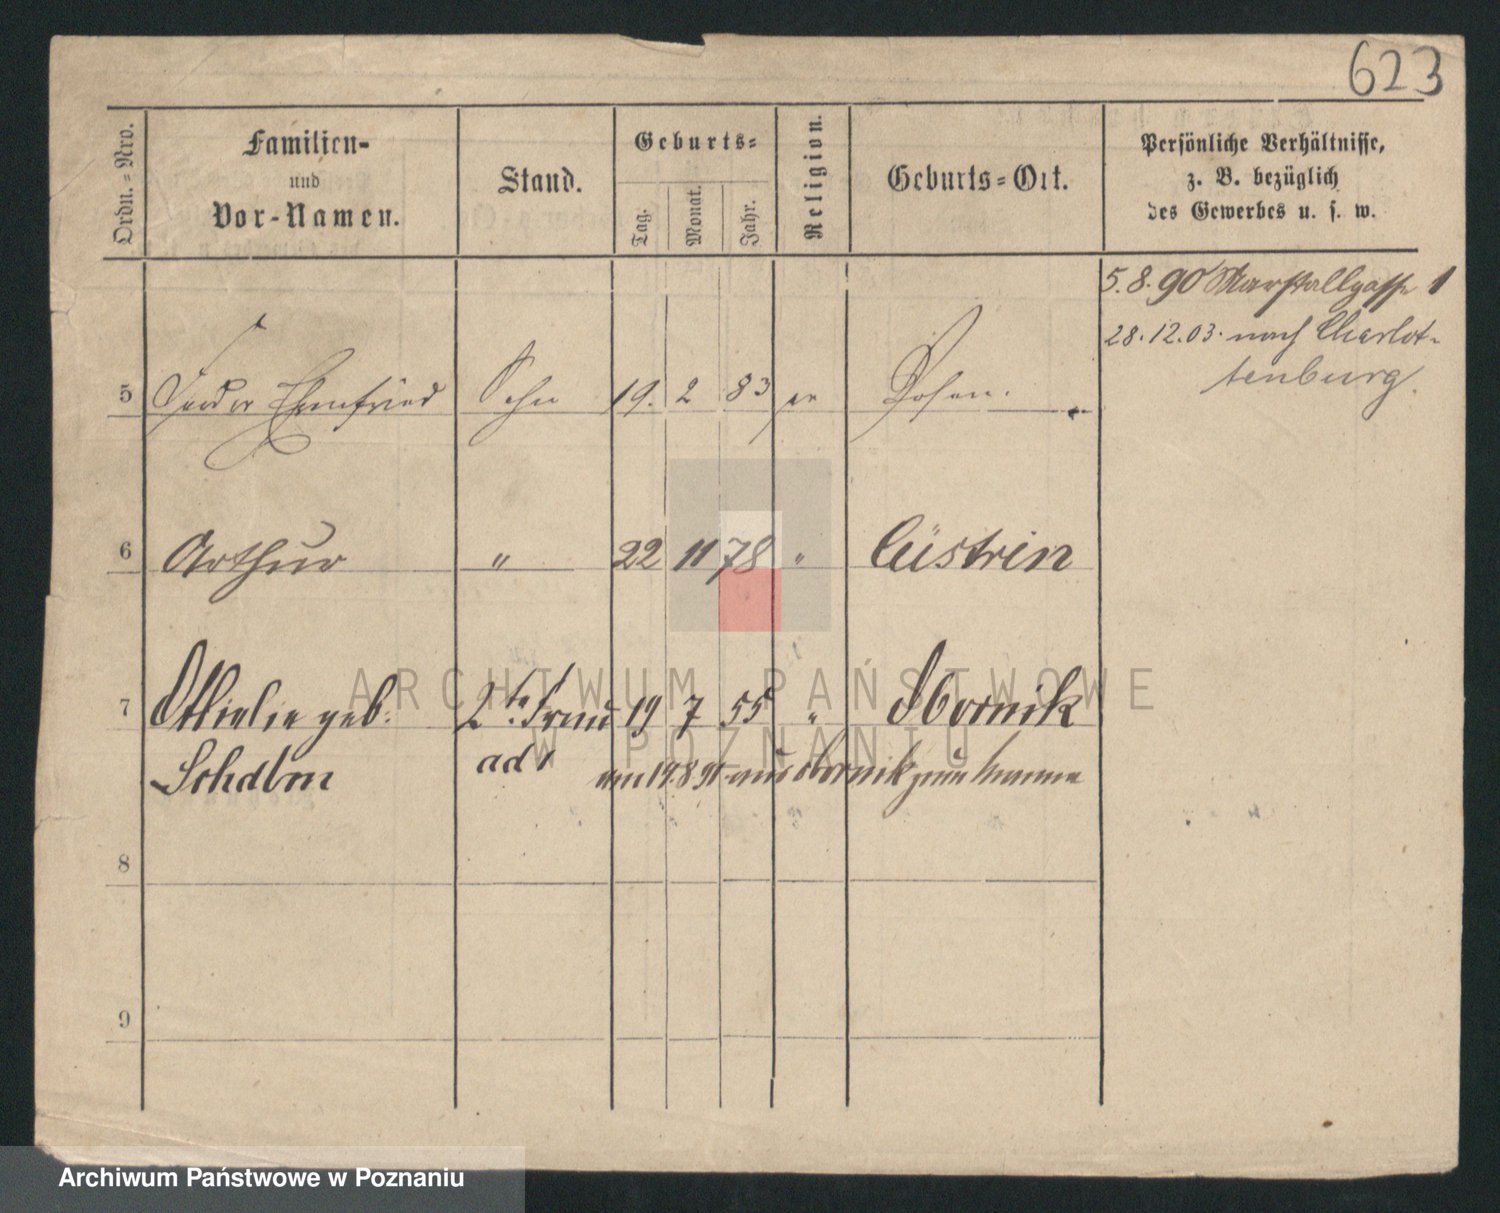 623
Ordn.-Nro.
Familien-
und
Vor-Namen.
Stand.
Geburts-
Tag.
Monat.
Jahr.
Religion.
Geburts-Ort.
Persönliche Verhältnisse,
z. B. bezüglich
des Gewerbes u. s. w.
5.8.90 Marstallgasse 1
28.12.03. nach Charlot-
tenburg.
5 Ehrenfried Sohn 19. 2 83 Posen.
6 Arthur " 22 11 78 " Cüstrin
7 Ottilie geb. 2te Frau 19 7 55 " Obornik
ad 1 am 19.8 91 aus Obornik zum Manne
8
9
ARCHIWUM PAŃSTWOWE
W POZNANIU
Archiwum Państwowe w Poznaniu